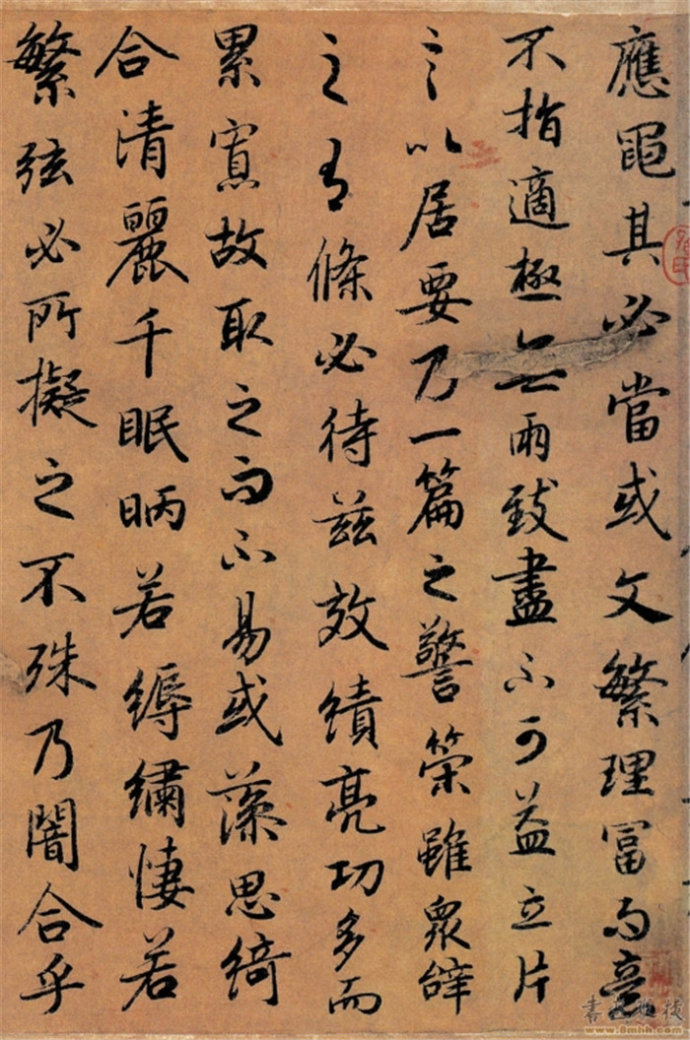 應黽其必當或文繁理冨而意
不指適極無兩致盡不可益立片
言以居要乃一篇之警策雖衆辝
之有條必待兹效績亮功多而
累寡故取之而不易或藻思綺
合清麗千眠昞若縟繡悽若
繁弦必所擬之不殊乃闇合乎
www.8mhh.com